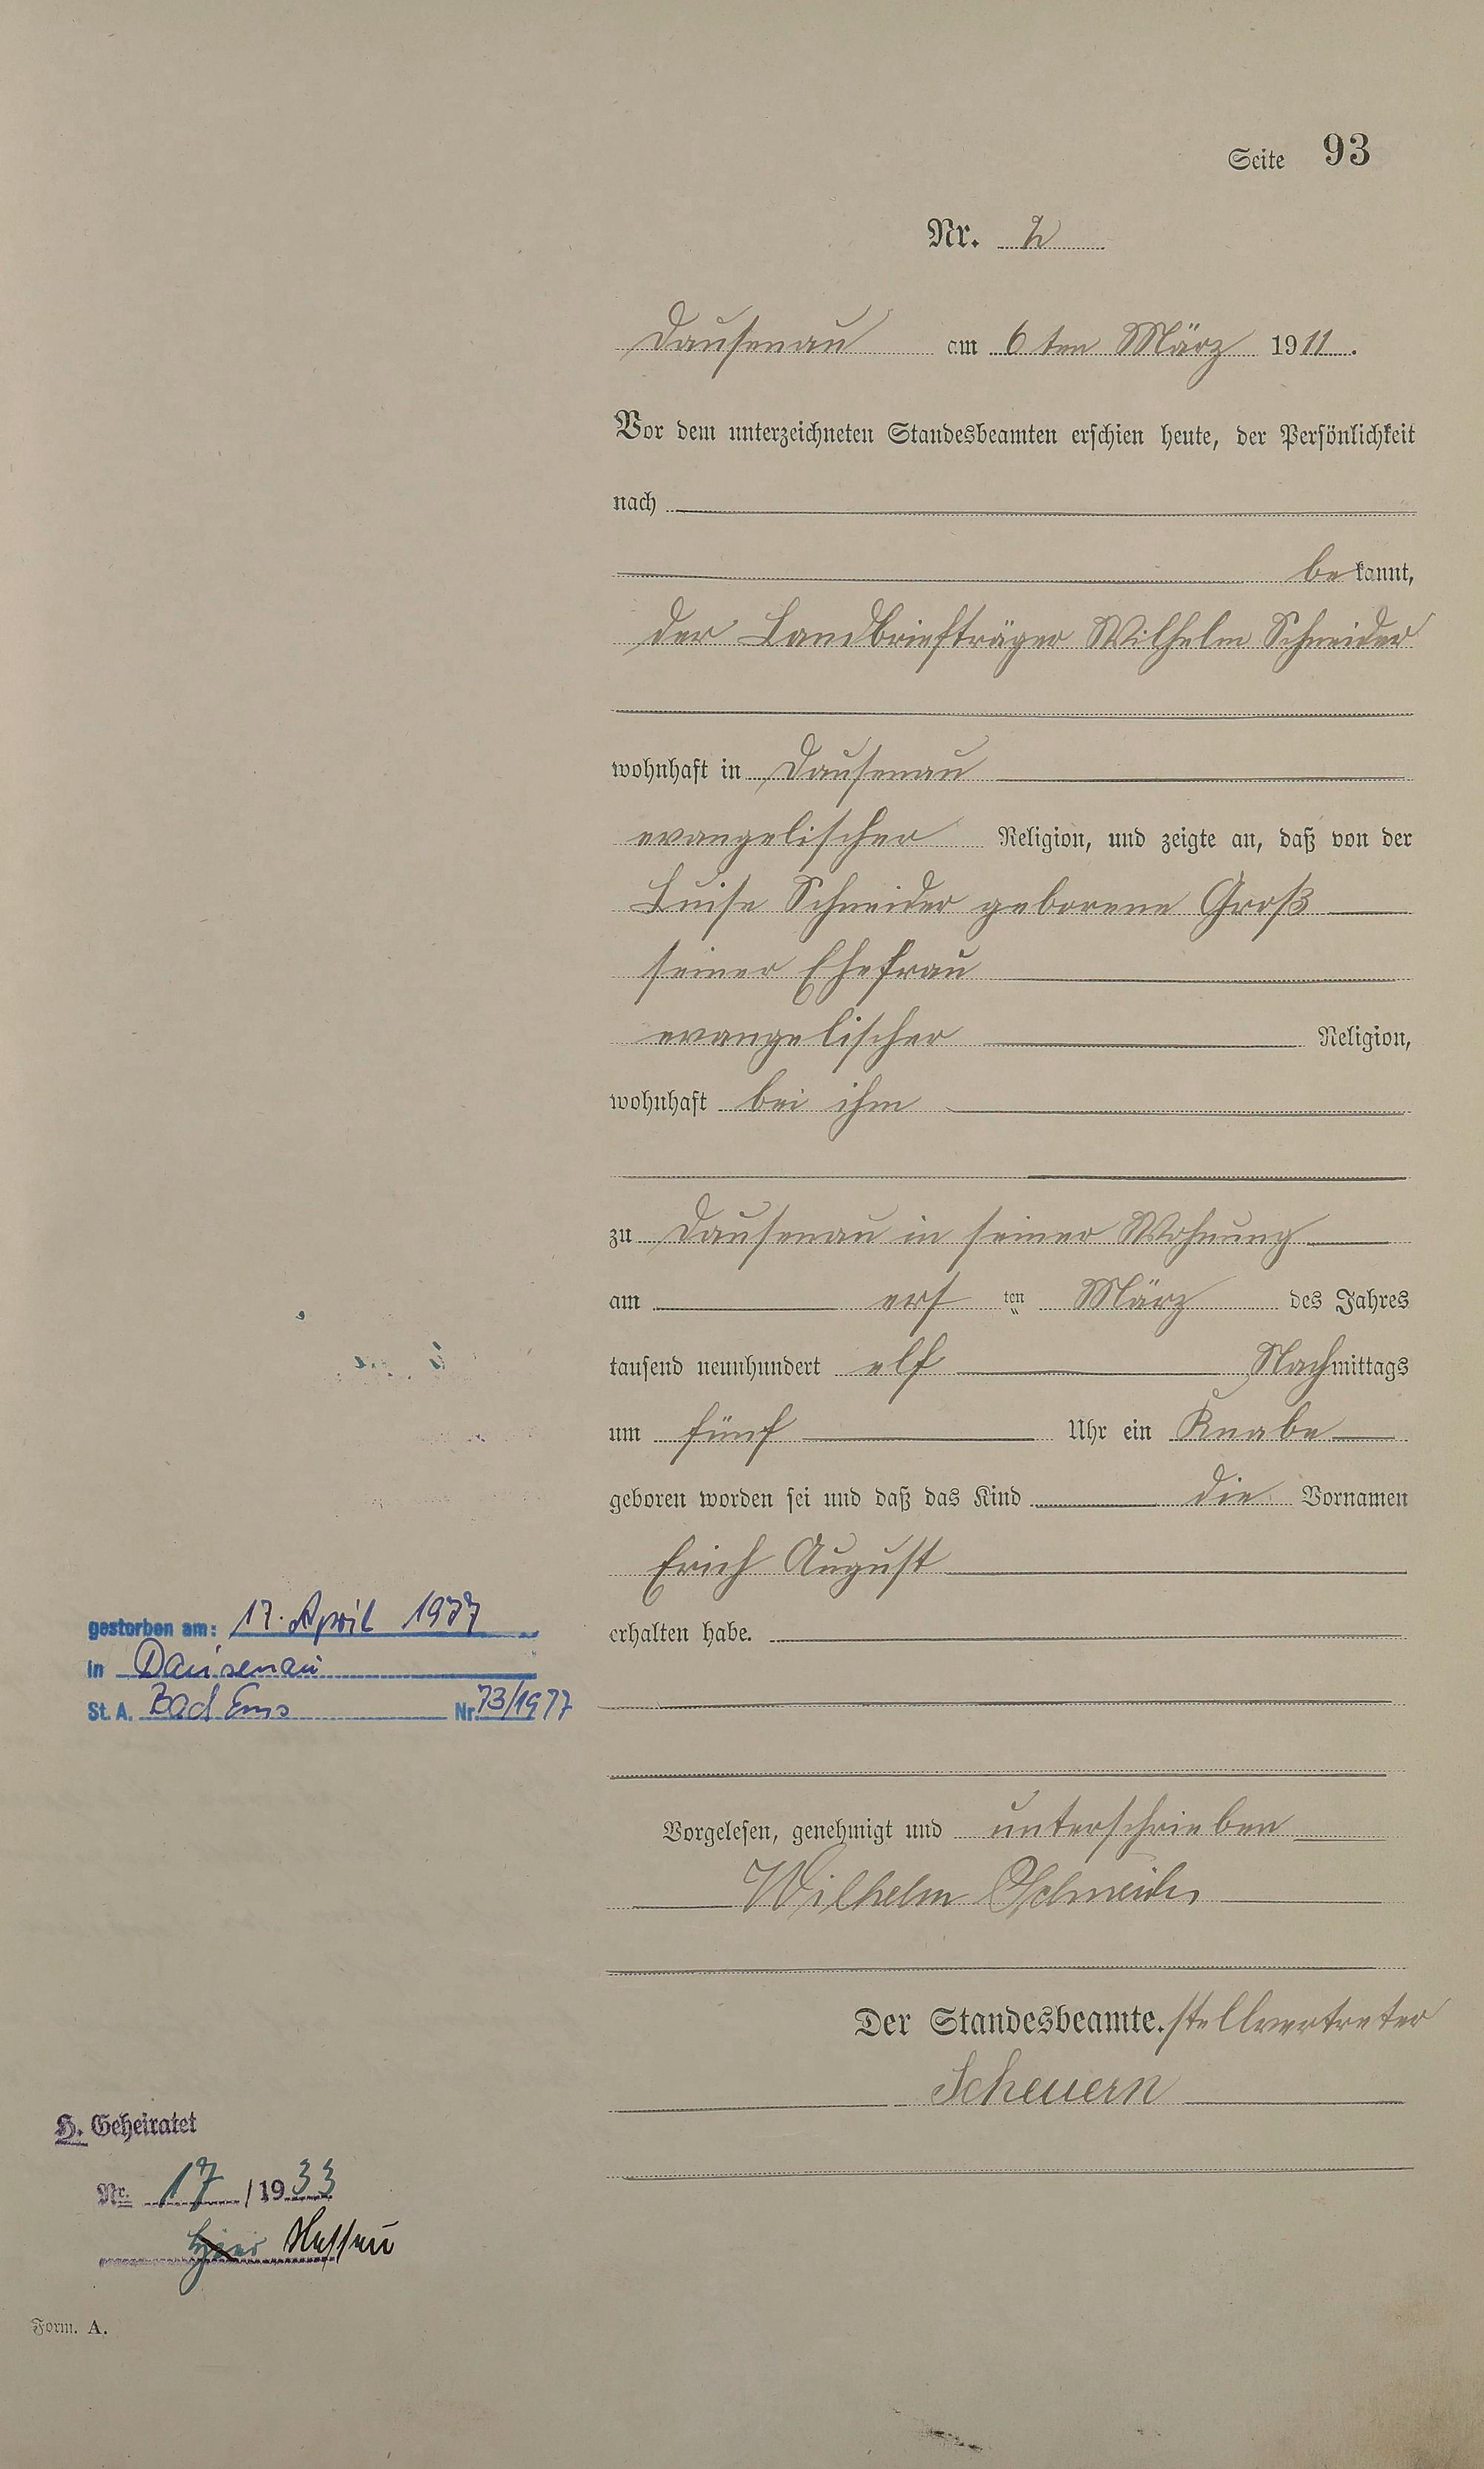 Seite 93
Nr. 2
Dausenau am 6 ten März 1911.
Vor dem unterzeichneten Standesbeamten erschien heute, der Persönlichkeit
nach
bekannt,
der Landbriefträger Wilhelm Schneider
wohnhaft in Dausenau
evangelischer Religion, und zeigte an, daß von der
Luise Schneider geborene Groß
seiner Ehefrau
evangelischer Religion,
wohnhaft bei ihm
zu Dausenau in seiner Wohnung
am ersten März des Jahres
tausend neunhundert elf Nachmittags
um fünf Uhr ein Knabe
geboren worden sei und daß das Kind die Vornamen
Erich August
erhalten habe.
gestorben am: 17. April 1977
in Dausenau
St. A. Bad Ems Nr. 73/1977
Vorgelesen, genehmigt und unterschrieben
Wilhelm Schneider
Der Standesbeamte.stellvertreter
Scheuern
H. Geheiratet
Nr. 17/1933
Nassau
Form. A.